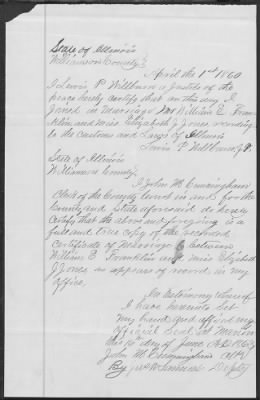 State of Illinois
Williamson County
April the 1st 1860
I Lewis P. Willburn a Justice of the
peace hereby certify that on this day I
Joined in Marriage Mr William E. Fran
klin and Miss Elizabeth J Jones
to the customs and Laws of Illinois
Lewis P. Willburn J.P.
State of Illinois
Williamson County
I John M Cunningham
Clerk of the County Court in and for the
County and State aforesaid do hereby
Certify that the above and forgoing is a
full and true copy of the
Certificate of Marriage between
William E. Franklin and Miss Elizabeth
J Jones as appears of record in my
office,
In testimony whereof
I have hereunto set
my hand and affixed my
official Seal at Marion
this day of June A.D. 186
John M Cunningham Clk
By Deputy